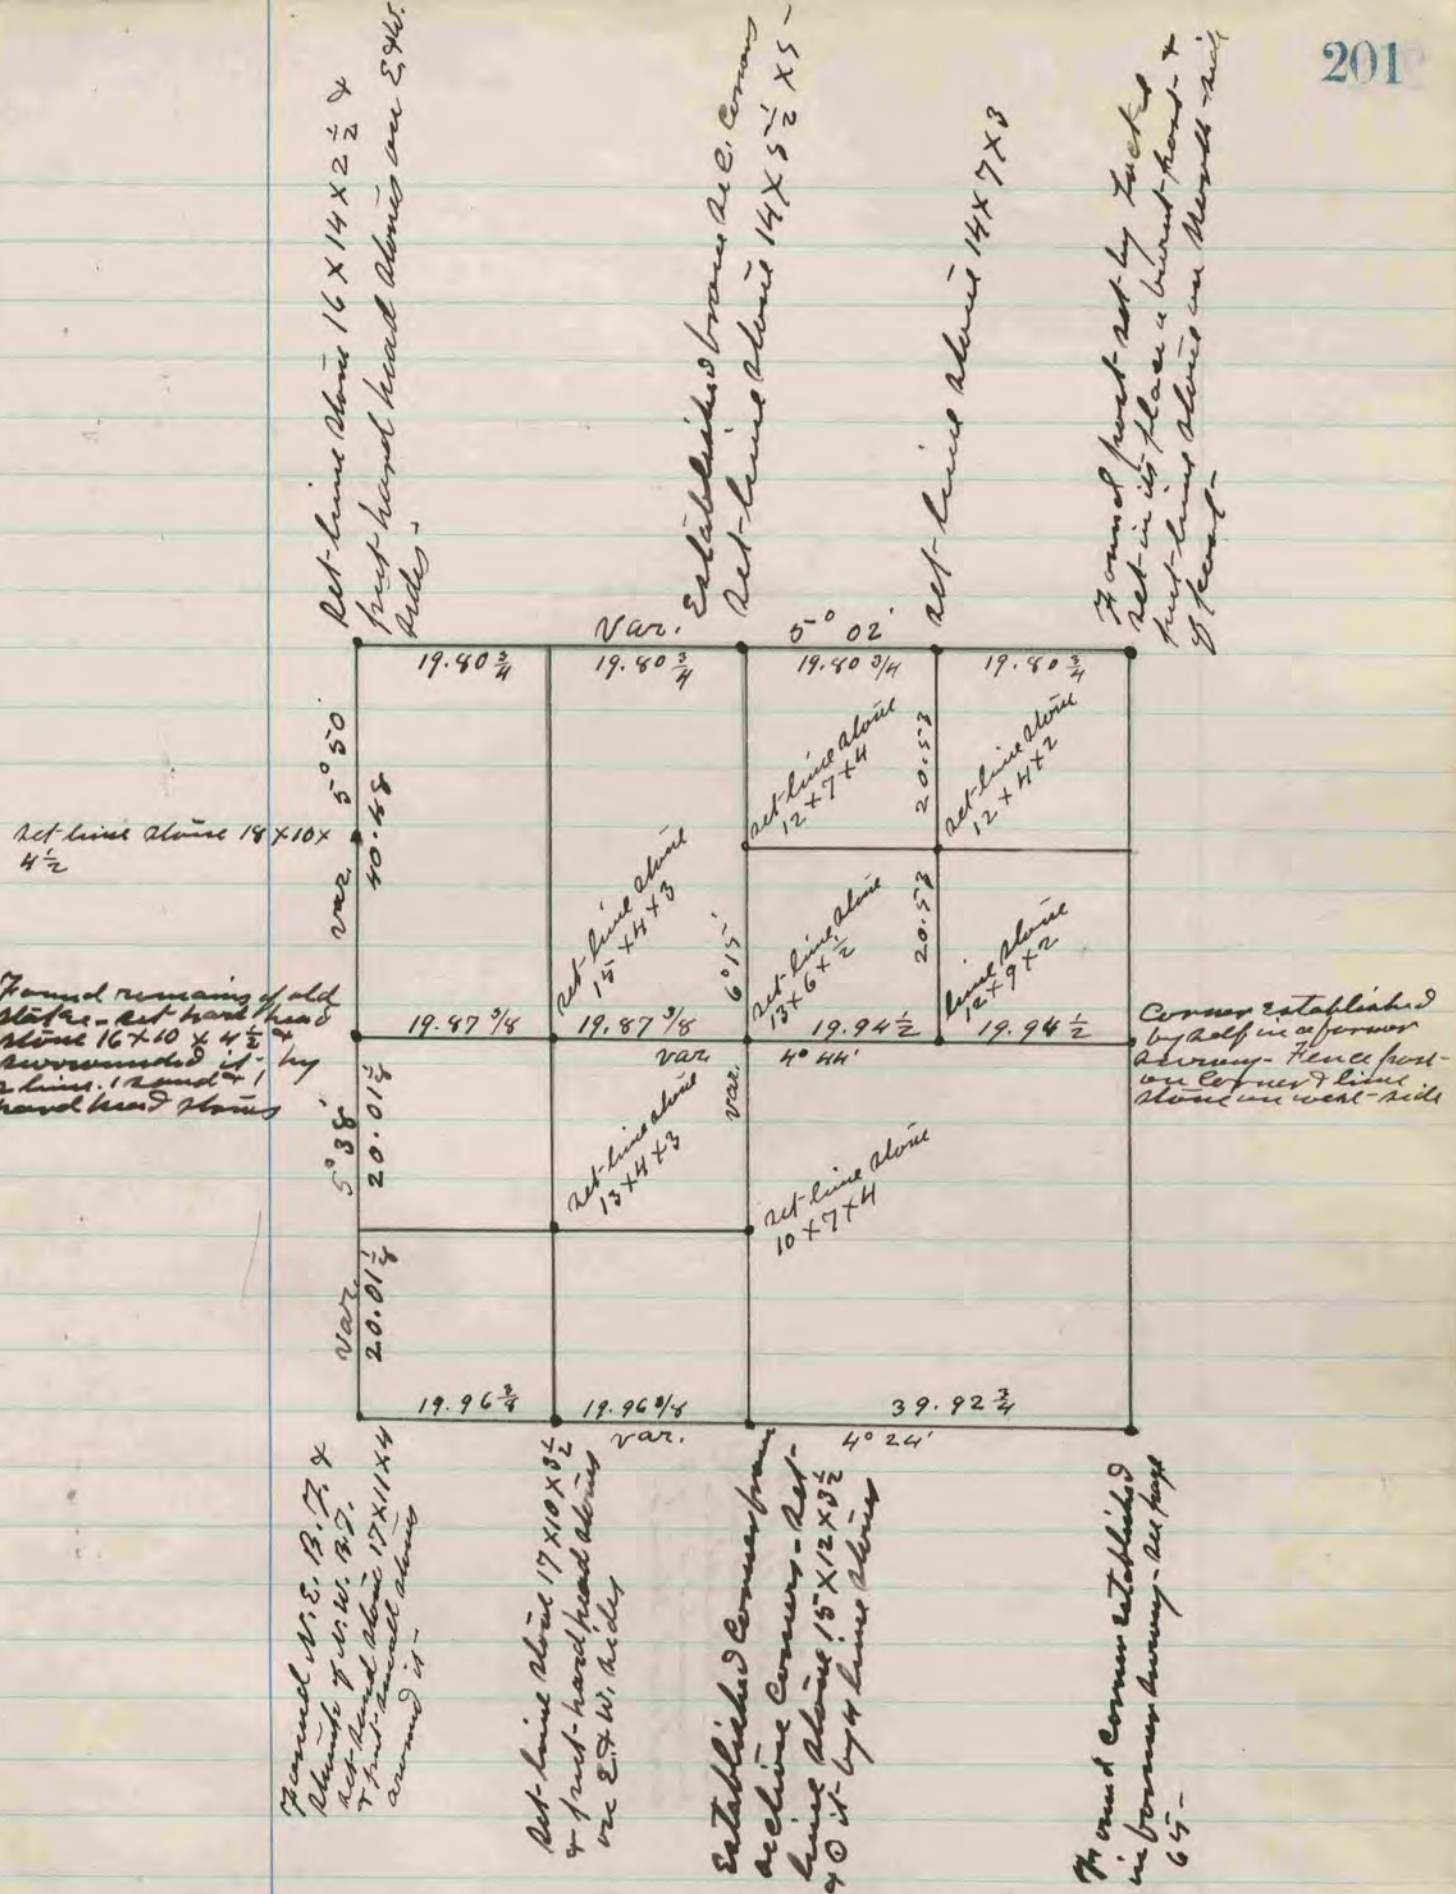 201
set-lime stone 16 X 14 X 2 1/2 &
put hard head stones on E. & W.
sides -
Established from sec. corners
set-lime stone 14 X 5 1/2 X 5 -
set-lime stone 14 X 7 X 3
Found post-set-by
set-in its place a burnt-post- &
put-lime stone on North-side
of post-
Var. 5° 02'
19.80 3/4
19.80 3/4
19.80 3/4
19.80 3/4
var. 5° 50'
40.48
set-lime stone
12 X 7 X 4
20.53
set-lime stone
12 X 4 X 2
set-lime stone 18 X 10 X
4 1/2
set-lime stone
15 X 4 X 3
var. 6° 15'
set-lime stone
13 X 6 X 1/2
20.53
lime stone
12 X 9 X 2
Found remains of old
stake - set hard head
stone 16 X 10 X 4 1/2 &
surrounded it- by
2 lime. 1 sand & 1
hard head stones
19.87 3/8
19.87 3/8
19.94 1/2
19.94 1/2
var. 4° 44'
Corner Established
by self in a former
survey - Fence post-
on Corner & lime
stone on west-side
var. 5° 38'
20.01 1/8
set-lime stone
13 X 4 X 3
set-lime stone
10 X 7 X 4
20.01 1/8
19.96 3/8
19.96 3/8
39.92 3/4
var. 4° 24'
Found N.E. B.T. &
stump of N.W. B.T.
set-sand stone 17 X 11 X 4
& put-small stones
around it-
set-lime stone 17 X 10 X 3 1/2
& put-hard head stones
on E & W. sides
Established Corner from
section Corners - set-
lime stone 15 X 12 X 3 1/2
& ⊙ it-by 4 lime stones
Found corner established
in former survey - see page
65 -